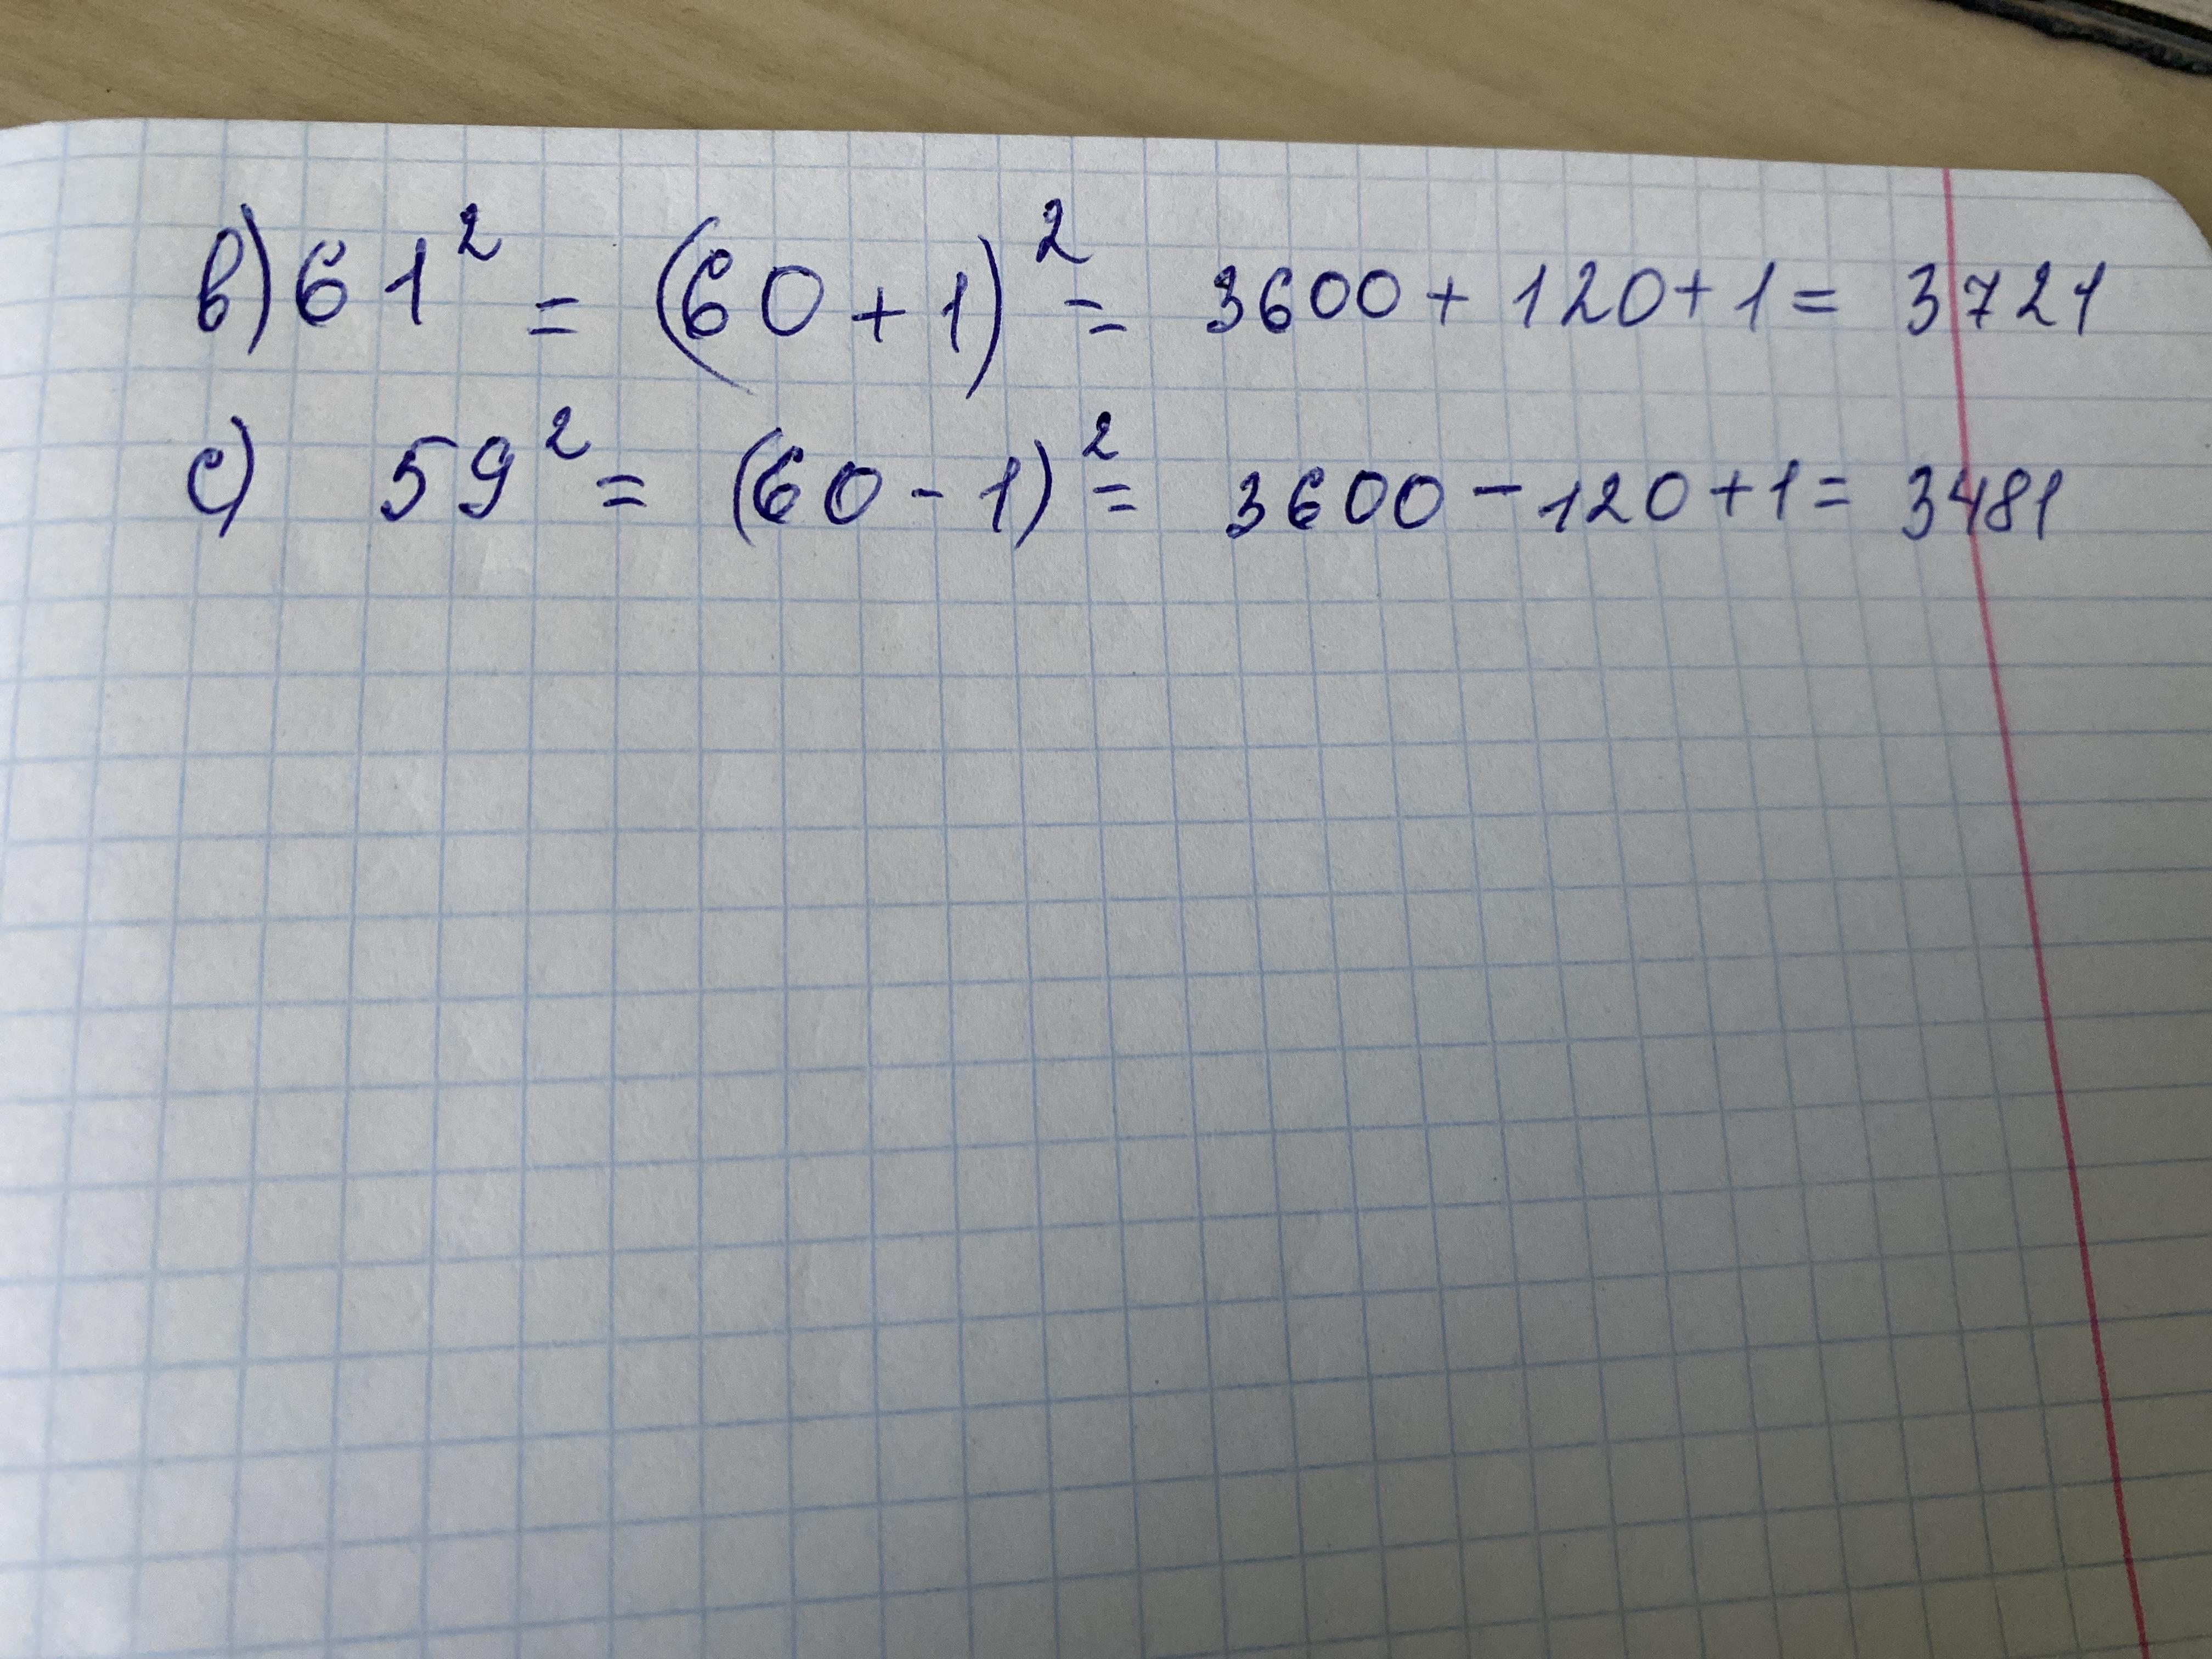 в) 61² = (60+1)² = 3600 + 120 + 1 = 3721
с) 59² = (60-1)² = 3600 - 120 + 1 = 3481